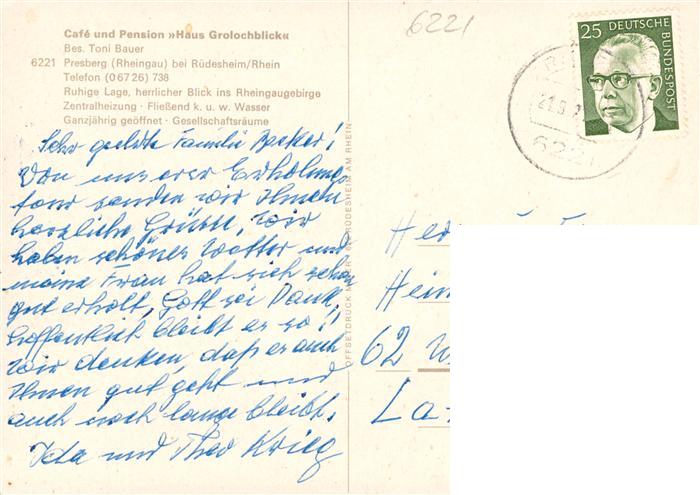 Café und Pension »Haus Grolochblick«
Bes. Toni Bauer
6221 Presberg (Rheingau) bei Rüdesheim/Rhein
Telefon (0 67 26) 738
Ruhige Lage, herrlicher Blick ins Rheingaugebirge
Zentralheizung · Fließend k. u. w. Wasser
Ganzjährig geöffnet · Gesellschaftsräume
6221
25 DEUTSCHE BUNDESPOST
6221
Sehr geehrte Familie Becker!
Von unserer Erholungs
tour senden wir Ihnen
herzliche Grüsse, wir
haben schönes Wetter und
meine Frau hat sich schon
gut erholt, Gott sei Dank,
hoffentlich bleibt es so!!
wir denken, daß es auch
Ihnen gut geht und
auch noch lange bleibt.
Ida und Theo Krieg
OFFSETDRUCK RÜDESHEIM AM RHEIN
Her
Hein
62 W
La